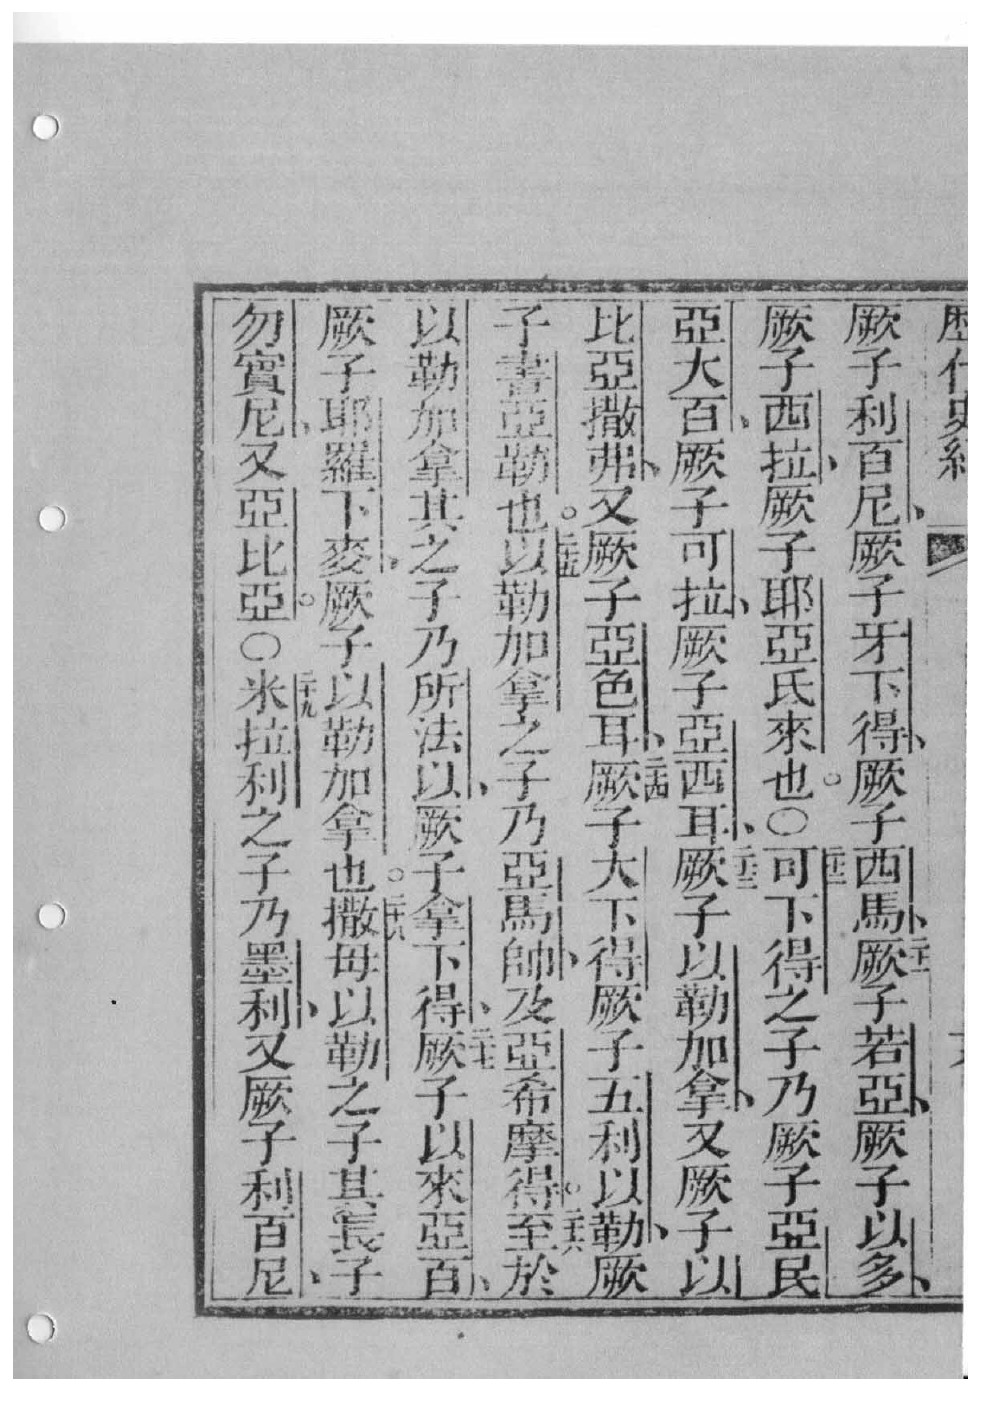 歷代史紀
厥子利百尼、厥子牙下得、厥子西馬、二十一厥子若亞、厥子以多、
厥子西拉、厥子耶亞氐來也。〇二十二可下得之子乃厥子亞民
亞大百、厥子可拉、厥子亞西耳、二十三厥子以勒加拿、又厥子以
比亞撒弗、又厥子亞色耳、二十四厥子大下得厥子五利以勒、厥
子書亞勒也。二十五以勒加拿之子乃亞馬帥、及亞希摩得。二十六至於
以勒加拿其之子乃所法以、厥子拿下得、二十七厥子以來亞百、
厥子耶羅下麥、厥子以勒加拿也。二十八撒母以勒之子其長子
勿實尼、又亞比亞。〇二十九米拉利之子乃墨利、又厥子利百尼、